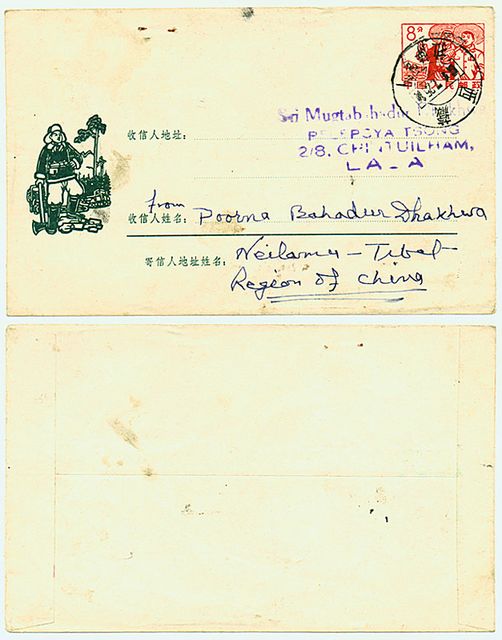 8分
中国人民邮政
西藏
收信人地址:
Sri Mugtabahadur
PELEPOYA TSONG
2/8, CH TUILHAM,
LA A
from
收信人姓名: Poorna Bahadur Dhakhwa
寄信人地址姓名: Neilamu - Tibet
Region of China